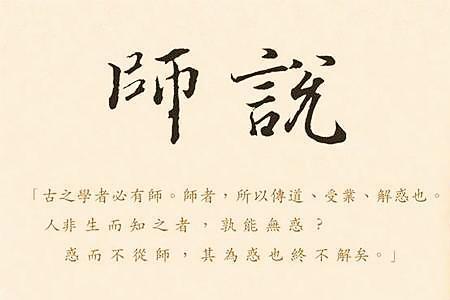 師說
「古之學者必有師。師者，所以傳道、受業、解惑也。
人非生而知之者，孰能無惑？
惑而不從師，其為惑也終不解矣。」